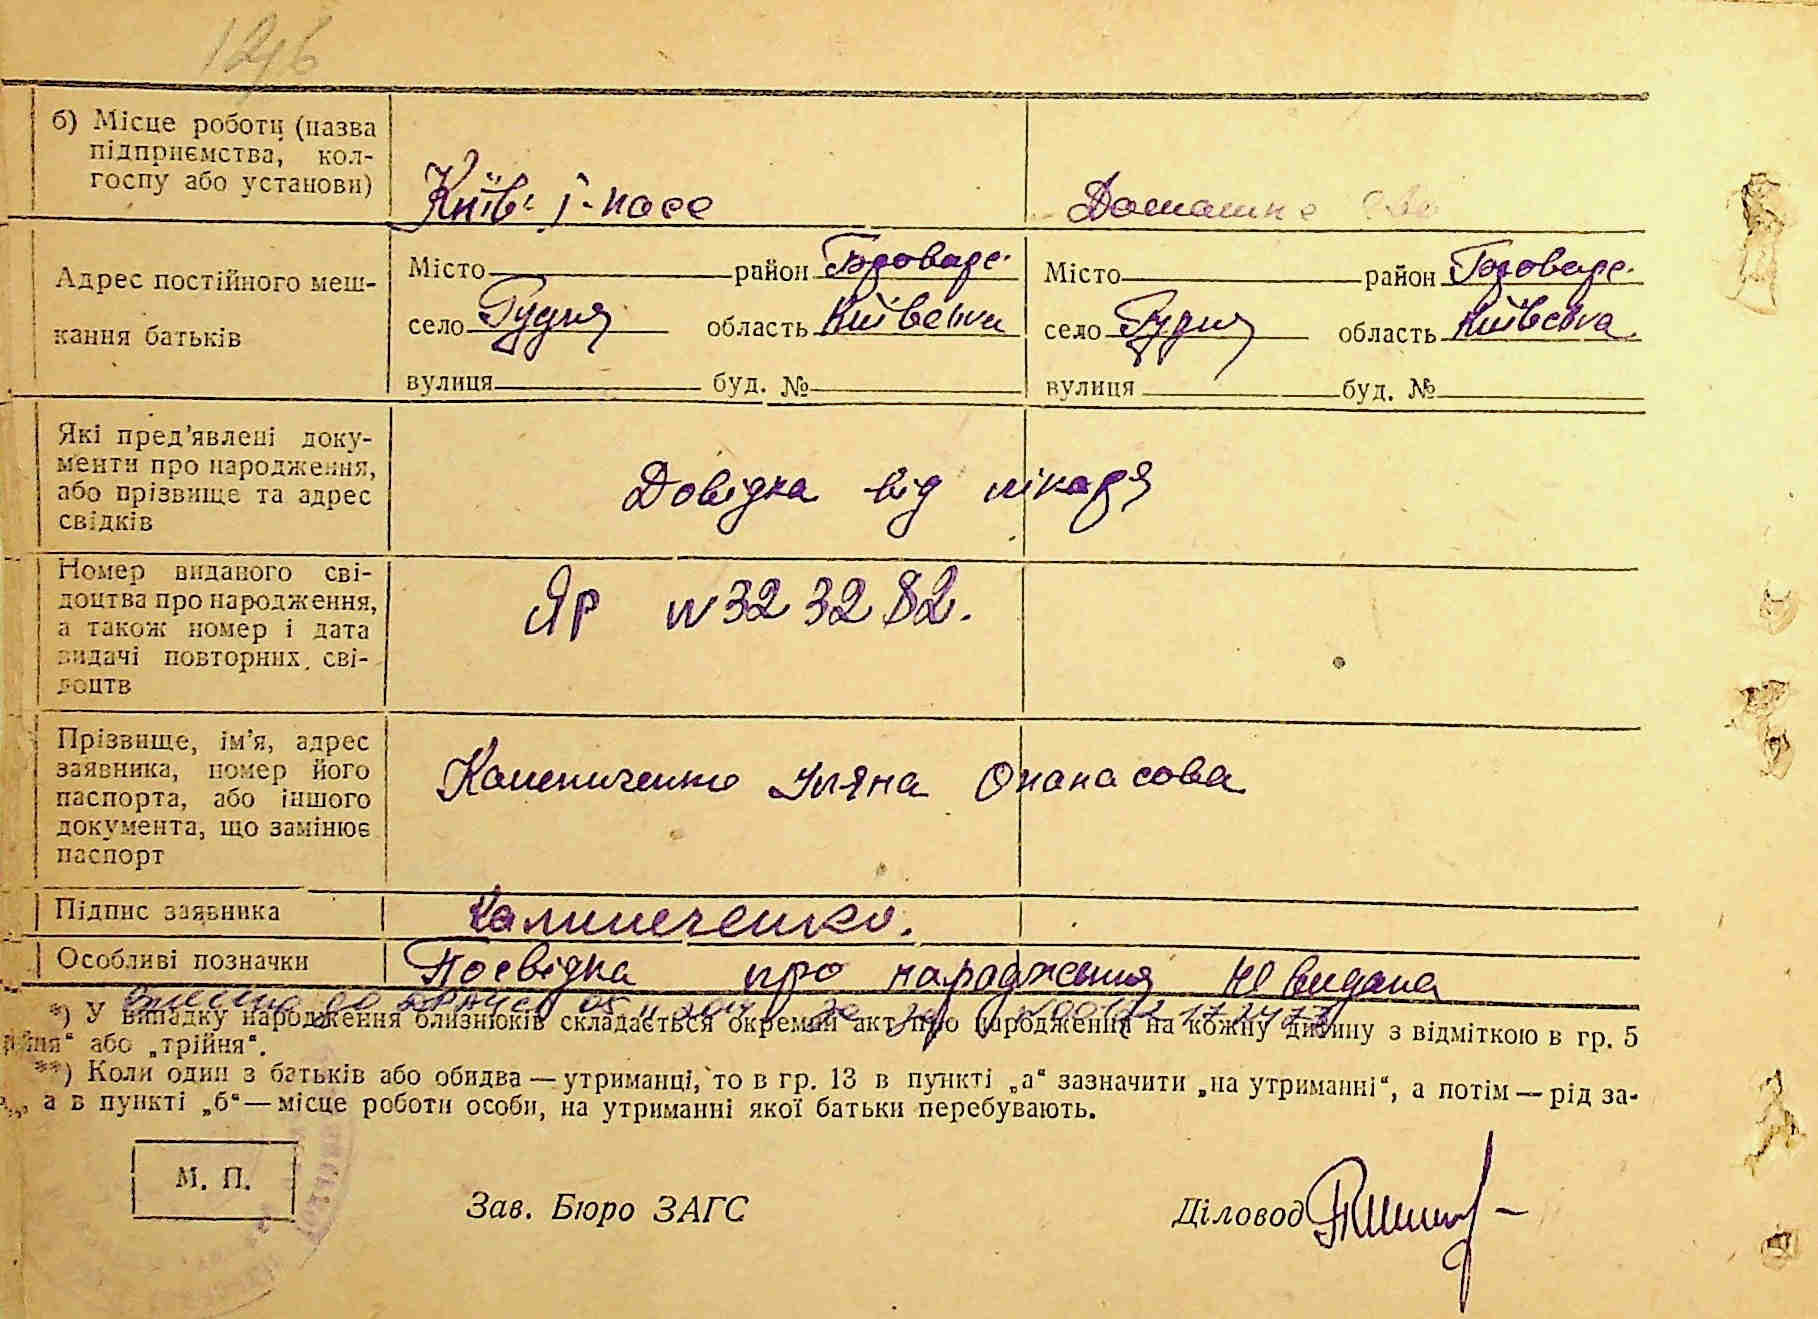 126
б) Місце роботи (назва
підприємства, кол-
госпу або установи)
Київ і-насе Домашнє
Адрес постійного меш-
кання батьків
Місто район Броварс. Місто район Броварс.
село Рудня область Київська село Рудня область Київська
вулиця буд. № вулиця буд. №
Які пред'явлені доку-
менти про народження,
або прізвище та адрес
свідків
Довідка від лікаря
Номер виданого сві-
доцтва про народження,
а також номер і дата
видачі повторних сві-
доцтв
ЯР N 32 32 82.
Прізвище, ім'я, адрес
заявника, номер його
паспорта, або іншого
документа, що замінює
паспорт
Калениченко Уляна Опанасова
Підпис заявника Калинеченко.
Особливі позначки Посвідка про народження не видана
внесено до ДРАЦС 05.11.2014 за №
*) У випадку народження близнюків складається окремий акт про народження на кожну дитину з відміткою в гр. 5
або „трійня“.
**) Коли один з батьків або обидва — утриманці, то в гр. 13 в пункті „а“ зазначити „на утриманні“, а потім — рід за-
а в пункті „б“ — місце роботи особи, на утриманні якої батьки перебувають.
М. П.
Зав. Бюро ЗАГС Діловод